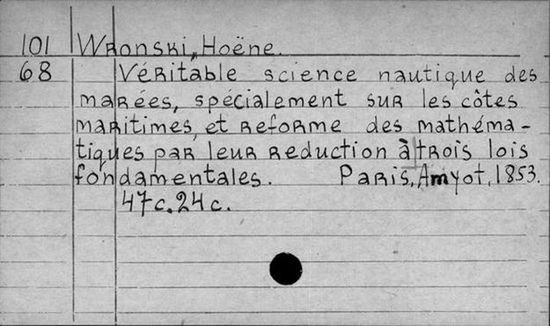 101 Wronski, Hoëne.
68 Véritable science nautique des
marées, spécialement sur les côtes
maritimes, et reforme des mathéma-
tiques par leur reduction à trois lois
fondamentales. Paris, Amyot, 1853.
47c. 24c.